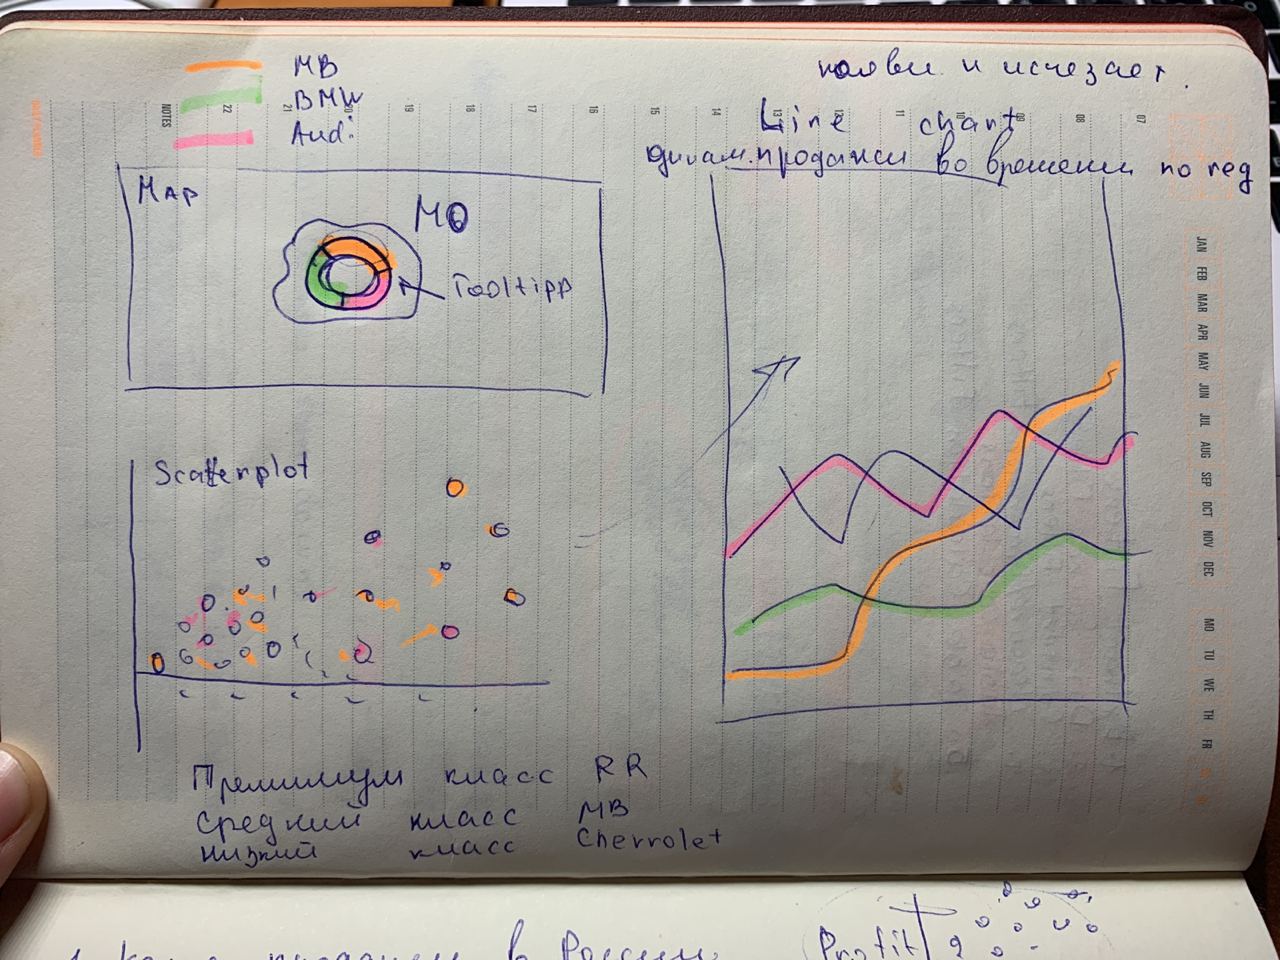 MB
BMW
Audi
появи. и исчезает.
Line chart
динам. продажи во времени по лед
NOTES 22 21 20 19 18 17 16 15 14 13 12 11 10 09 08 07
MAP
МО
Tooltipp
Scatterplot
JAN FEB MAR APR MAY JUN JUL AUG SEP OCT NOV DEC
MO TU WE TH FR
Премииум класс RR
Средний класс MB
низкий класс Chevrolet
продажи в России
Profit